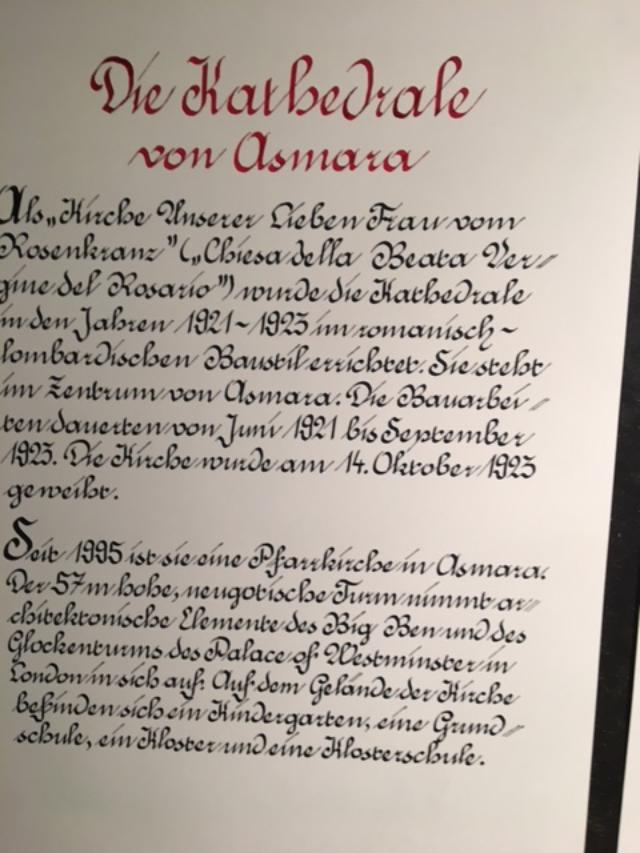 Die Kathedrale
von Asmara
Als „Kirche Unserer Lieben Frau vom
Rosenkranz" („Chiesa della Beata Ver-
gine del Rosario") wurde die Kathedrale
in den Jahren 1921-1923 im romanisch-
lombardischen Baustil errichtet. Sie steht
im Zentrum von Asmara. Die Bauarbei-
ten dauerten von Juni 1921 bis September
1923. Die Kirche wurde am 14. Oktober 1923
geweiht.
Seit 1995 ist sie eine Pfarrkirche in Asmara.
Der 57 m hohe, neugotische Turm nimmt ar-
chitektonische Elemente des Big Ben und des
Glockenturms des Palace of Westminster in
London in sich auf. Auf dem Gelände der Kirche
befinden sich ein Kindergarten, eine Grund-
schule, ein Kloster und eine Klosterschule.